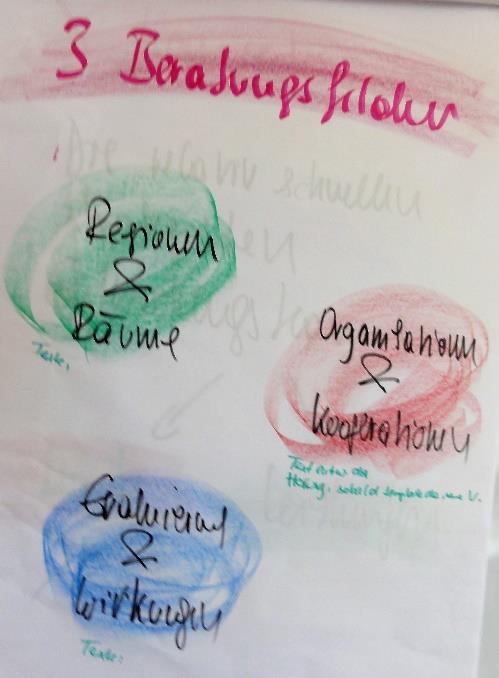 3 Beratungsfelder
Regionen
&
Räume
Texte:
Organisationen
&
Kooperationen
Text
sobald
Evaluierung
&
Wirkungen
Texte: